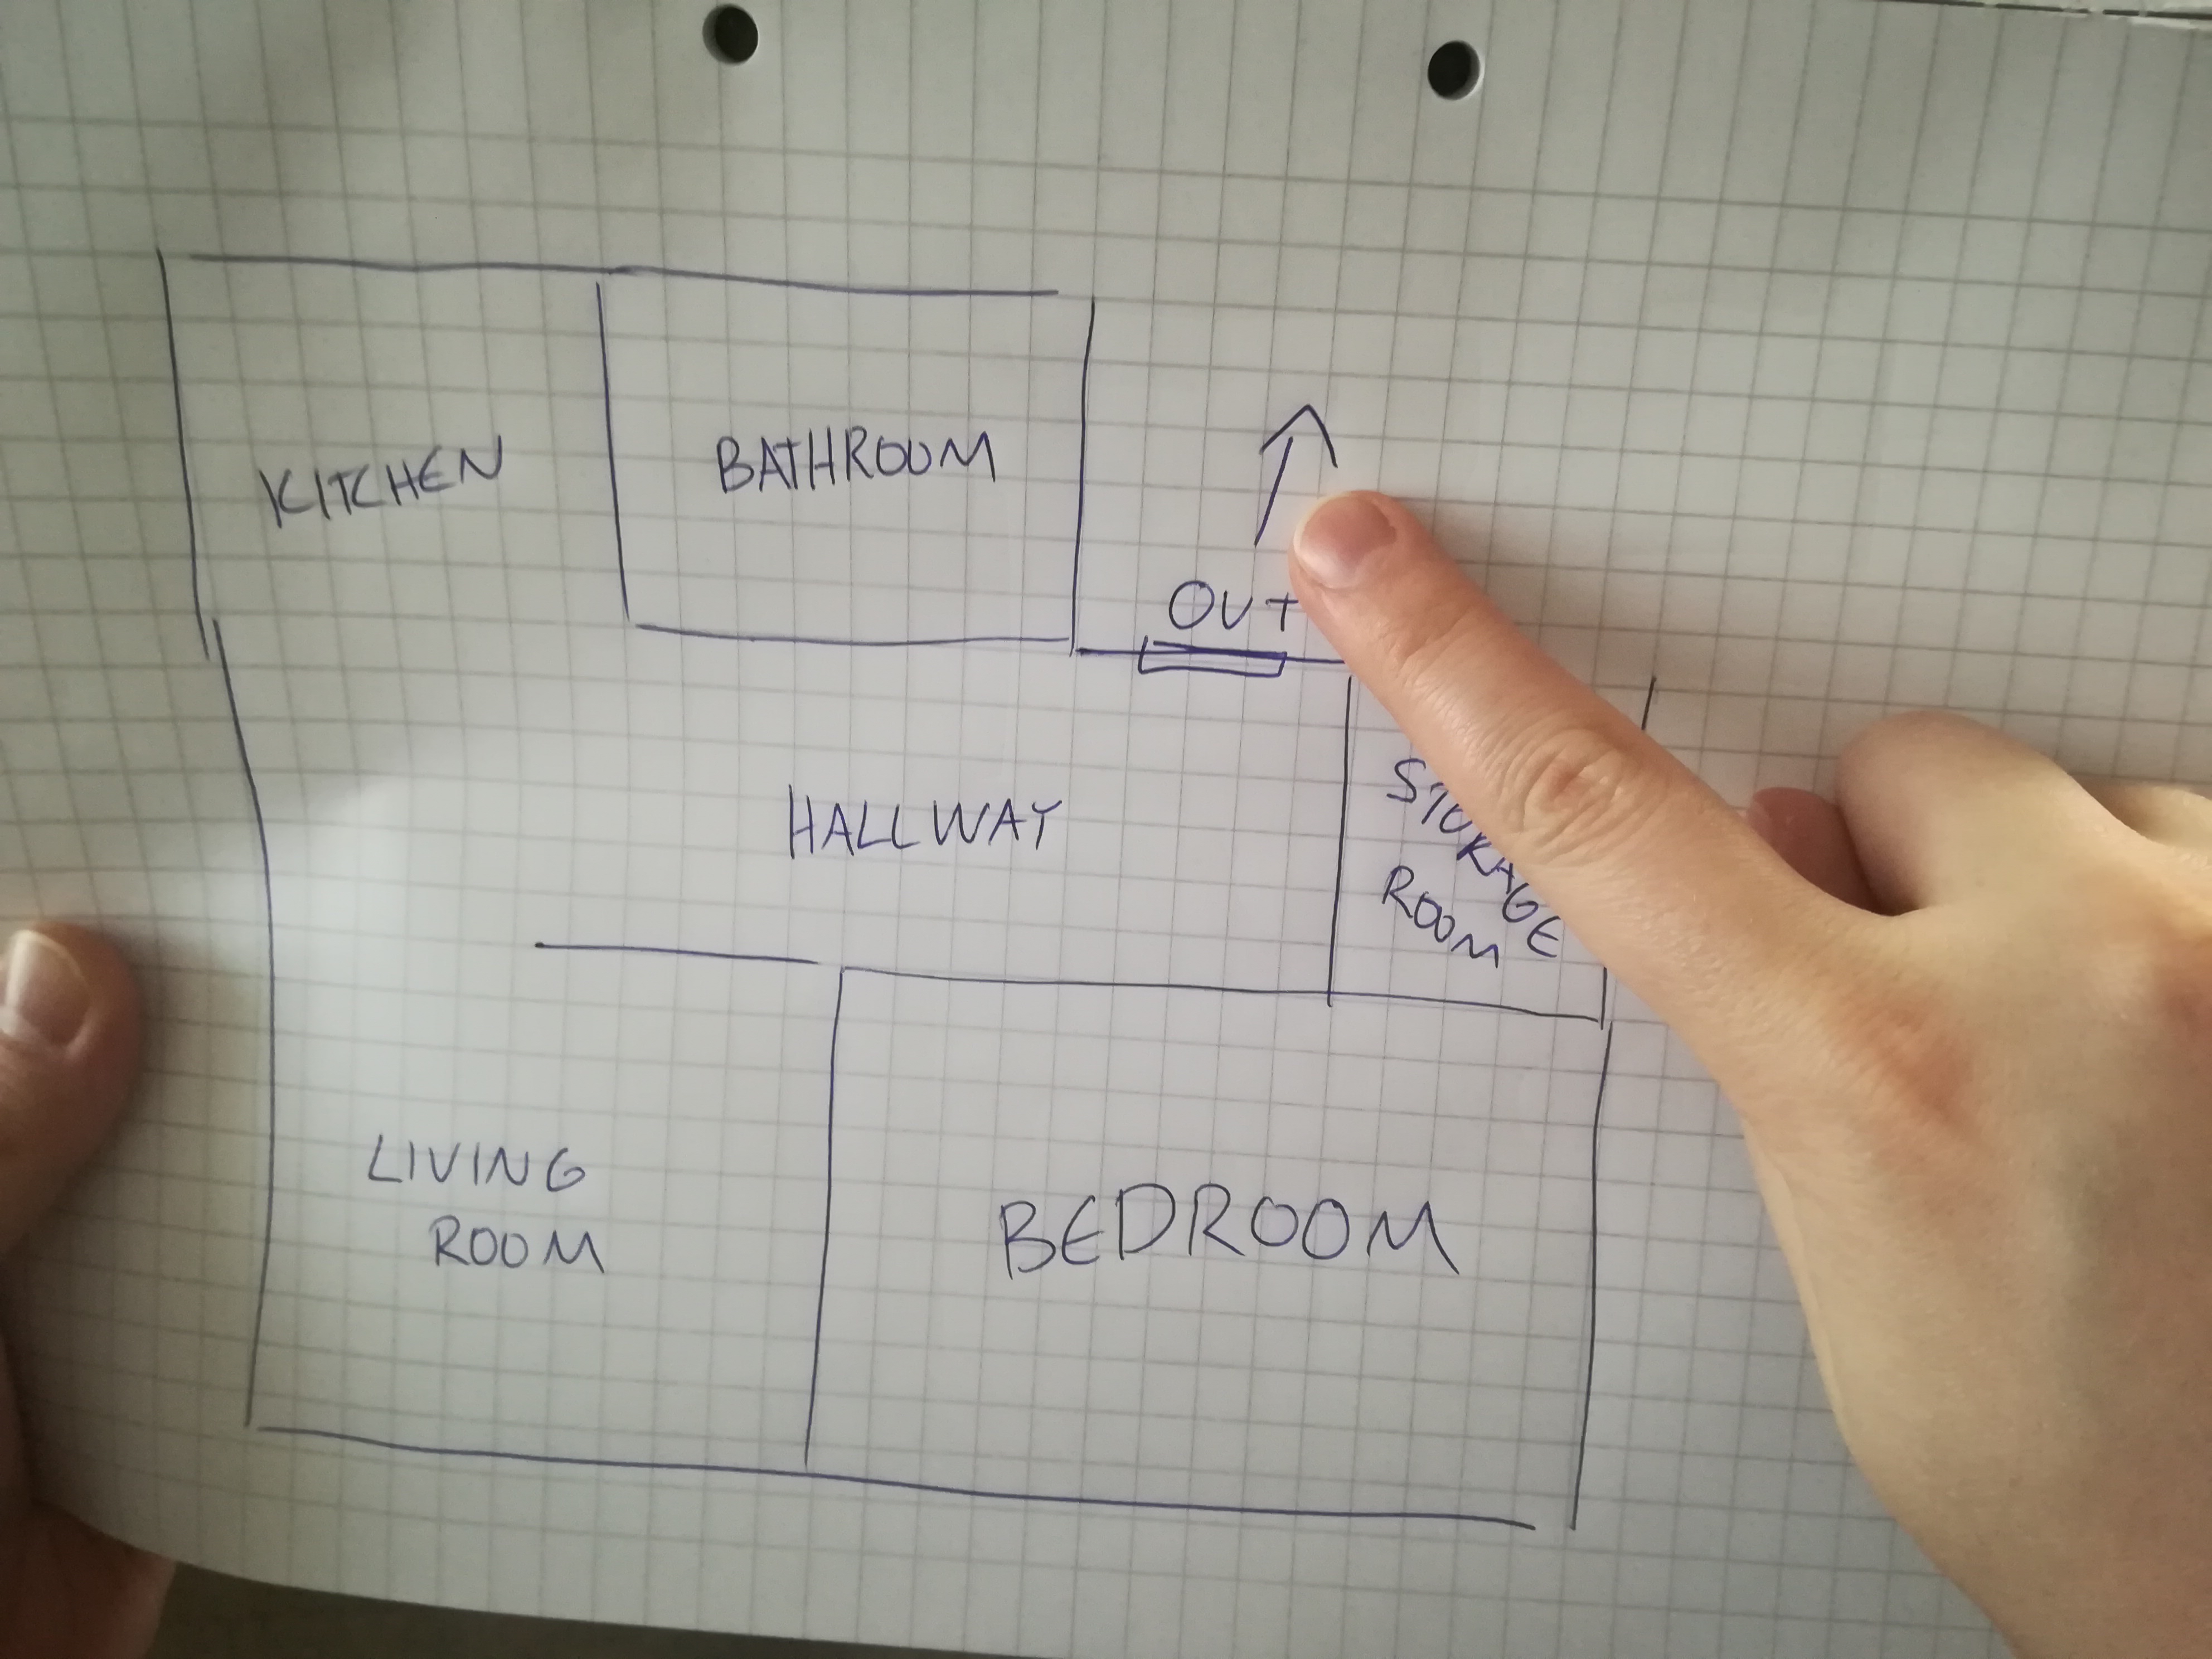 KITCHEN
BATHROOM
OUT
HALLWAY
STORAGE
ROOM
LIVING
ROOM
BEDROOM